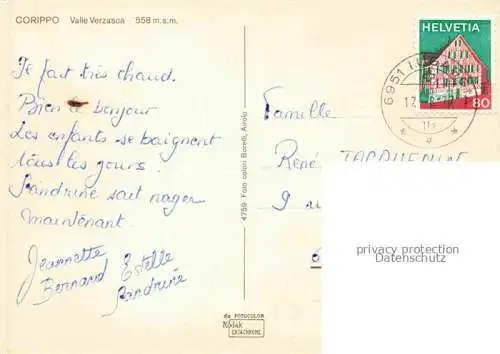 CORIPPO Valle Verzasca 558 m.s.m.
HELVETIA
80
6951
17.
11a
Je fait très chaud.
Bien le bonjour
Les enfants se baignent
tous les jours.
Sandrine sait nager
maintenant.
Jeannette
Bernard Estelle
Sandrine
Famille
René JACQUEMIN
9
4759 Foto colori Borelli, Airolo
da FOTOCOLOR
Kodak
EKTACHROME
privacy protection
Datenschutz